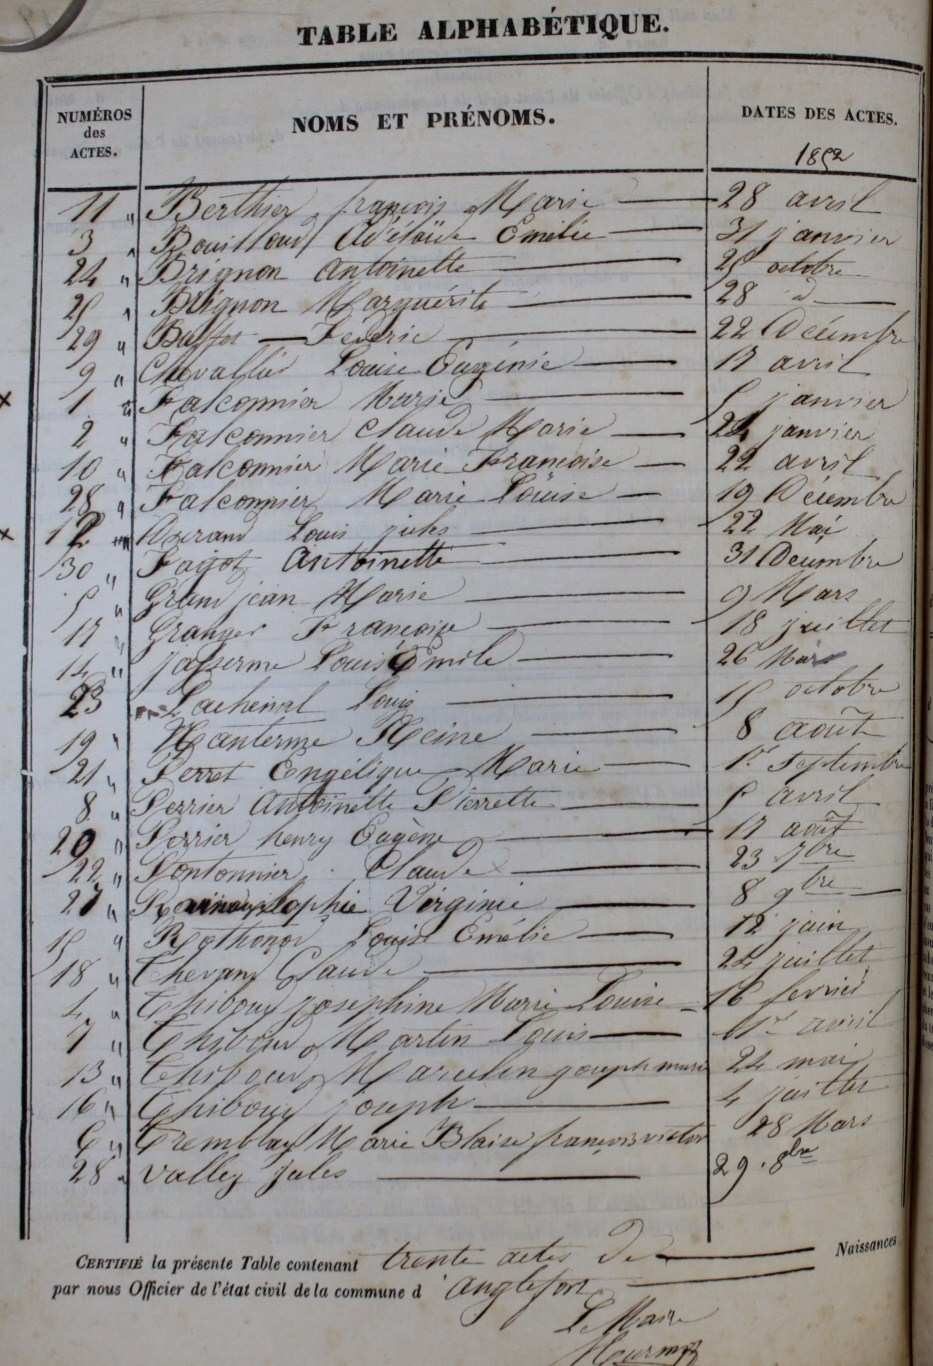 TABLE ALPHABÉTIQUE.
NUMÉROS des ACTES. NOMS ET PRÉNOMS. DATES DES ACTES.
1852
11 " Berthier françois Marie 28 avril
3 " Bouilloud Adélaïde Emélie 31 janvier
24 " Brignon Antoinette 25 octobre
25 " Brignon Marguérite 28 d
29 " 22 Décembre
9 " Chevallier Louise Eugénie 17 avril
x 1 " Falconnier Marie 5 janvier
2 " Falconnier Claude Marie 24 janvier
10 " Falconnier Marie Françoise 22 avril
28 " Falconnier Marie Louise 19 Décembre
x 12 " Louis jules 22 Mai
30 " Fagot Antoinette 31 Decembre
5 " Grand jean Marie 9 Mars
17 " Granger Françoise 18 juillet
14 " jasserme Louis Emile 26 Mars
23 Lachenal Louis 15 octobre
19 " Manterne Reine 8 août
21 " Perret Engélique Marie 1er Septembre
8 " Perrier Antoinette Pierrette 5 avril
20 " Perrier henry Eugène 17 août
22 " Pontonnier Claude 23 7bre
27 " Sophie Virginie 8 9bre
15 " Rothonod Louise Emélie 12 juin
18 " Thevand Claude 24 juillet
4 " Thiboud josephine Marie Louise 16 fevrier
7 " Thiboud Martin Louis 1er avril
13 " Thiboud Marcelin joseph marie 24 mai
16 " Thiboud joseph 4 juillet
6 " Tremblay Marie Blaise françois victor 28 Mars
28 " Valley jules 29 8bre
CERTIFIÉ la présente Table contenant trente actes de Naissances
par nous Officier de l'état civil de la commune d'Anglefort
Le Maire